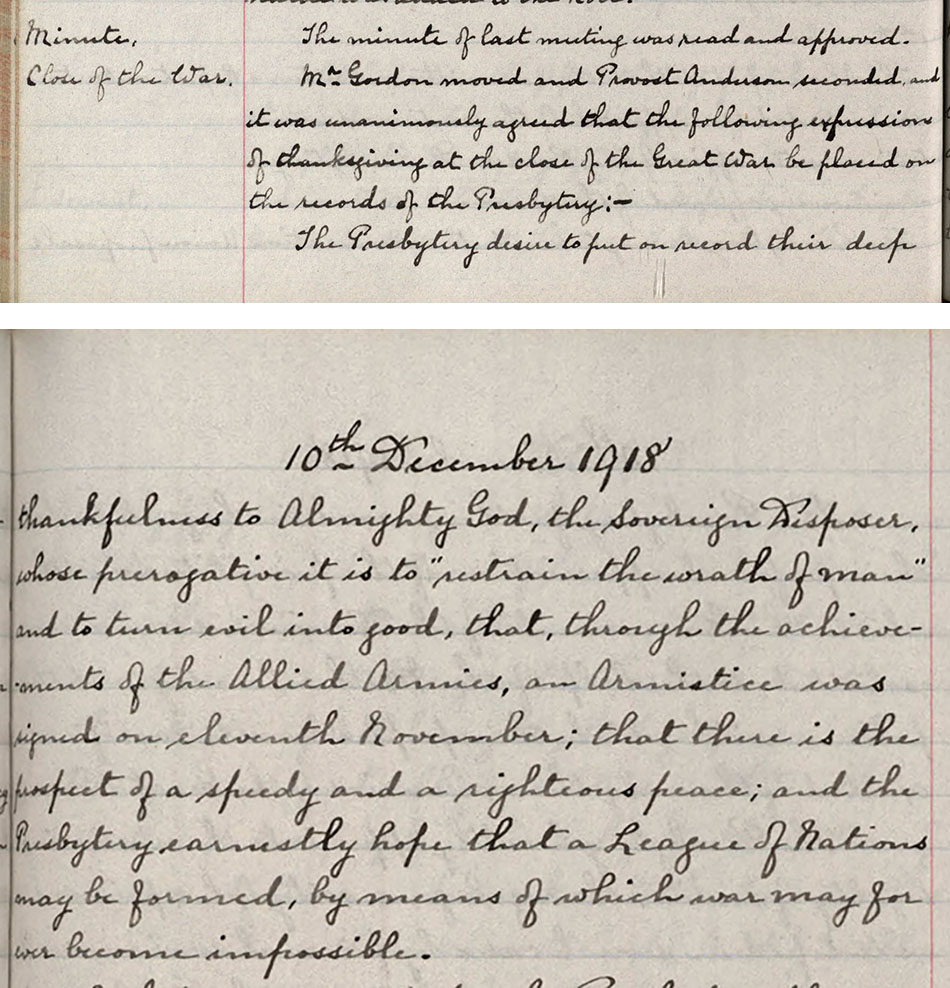 Minute,
The minute of last meeting was read and approved.
Close of the War.
Mr. Gordon moved and Provost Anderson seconded, and
it was unanimously agreed that the following expression
of thanksgiving at the close of the Great War be placed on
the records of the Presbytery:-
The Presbytery desire to put on record their deep
10th December 1918
thankfulness to Almighty God, the Sovereign Disposer,
whose prerogative it is to "restrain the wrath of man"
and to turn evil into good, that, through the achieve-
-ments of the Allied Armies, an Armistice was
signed on eleventh November; that there is the
prospect of a speedy and a righteous peace; and the
Presbytery earnestly hope that a League of Nations
may be formed, by means of which war may for
ever become impossible.